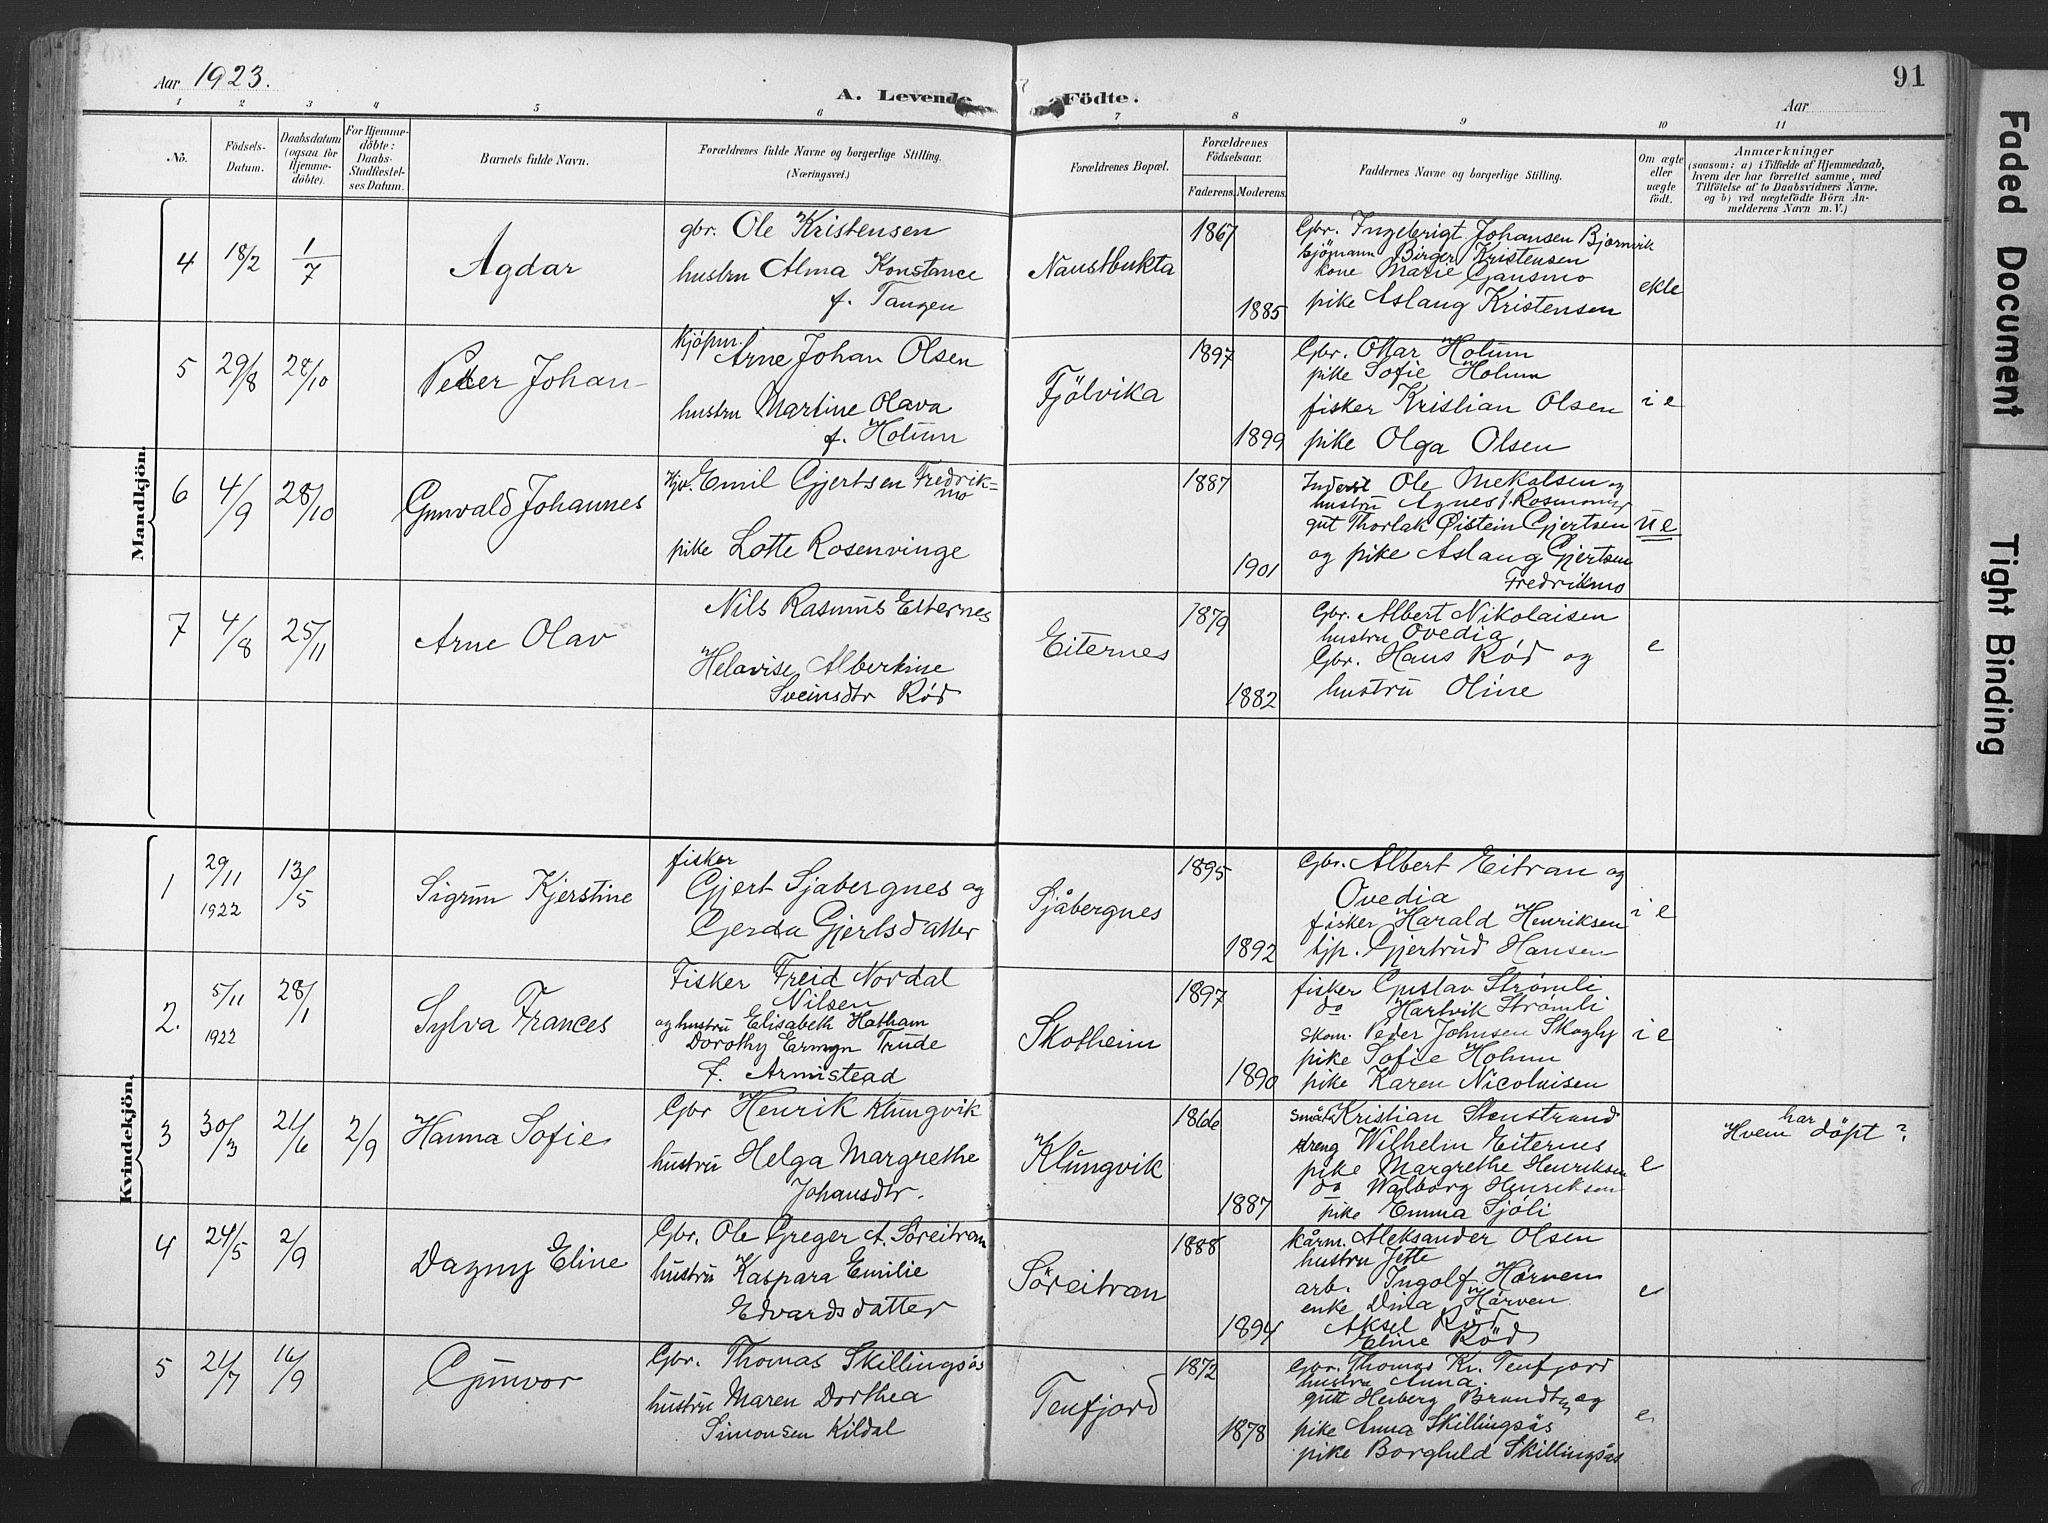 Aar 1923.
A. Levende Födte.
Aar
91
1 2 3 4 5 6 7 8 9 10 11
No.
Födsels-
Datum.
Daabsdatum
(ogsaa for
Hjemme-
döbte).
For Hjemme-
döbte:
Daabs-
Stadfæstel-
ses Datum.
Barnets fulde Navn.
Forældrenes fulde Navne og borgerlige Stilling.
(Næringsvei.)
Forældrenes Bopæl.
Forældrenes
Födselsaar.
Faderens.
Moderens.
Faddernes Navne og borgerlige Stilling.
Om ægte
eller
uægte
födt.
Anmærkninger
(saasom: a) i Tilfælde af Hjemmedaab,
hvem der har forrettet samme, med
Tilföielse af to Daabsvidners Navne.
og b) ved uægtefödte Börn An-
melderens Navn m. V.)
Mandkjön.
4 18/2 1/7 Agdar
gbr. Ole Kristensen
hustru Alma Konstance
f. Tangen
Naustbukta
1867
1885
Gbr. Ingebrigt Johansen Bjørnvik
sjömann Birger Kristensen
kone Marie Gansmo
pike Aslaug Kristensen
ekte
5 29/8 28/10 Petter Johan
kjöpm. Arne Johan Olsen
hustru Martine Olava
f. Holum
Fjölvika
1897
1899
Gbr. Ottar Holum
pike Sofie Holum
fisker Kristian Olsen
pike Olga Olsen
i e
6 4/9 28/10 Gunvald Johannes
Emil Gjertsen Fredrik=
mo
pike Lotte Rosenvinge
1887
1901
Inderst Ole Mekalsen og
hustru Agnes f.
gut Thorlak Øistein Gjertsen
og pike Aslaug Gjertsen
Fredrikmo
u e
7 4/8 25/11 Arne Olav
Nils Rasmus Eiternes
Helavise Albertine
Sveinsdtr Rød
Eiternes
1879
1882
Gbr. Albert Nikolaisen
hustru Ovedia
Gbr. Hans Rød og
hustru Oline
e
Kvindekjön.
1 29/11 1922 13/5 Sigrun Kjerstine
fisker
Gjert Sjabergnes og
Gerda Gjertsdatter
Sjåbergnes
1895
1892
Gbr. Albert Eitran og
Ovedia
fisker Harald Henriksen
tjp. Gjertrud Hansen
i e
2. 5/11 1922 28/1 Sylva Frances
Fisker Freid Nordal
Nilsen
og hustru Elisabeth Hatham
Dorothy Ermyn Trude
f. Armistead
Skotheim
1897
1890
fisker Gustav Strømli
do Hartvik Strømli
Skom. Peder Johnsen Skogly
pike Sofie Holum
pike Karen Nicolaisen
i e
3 30/3 21/6 2/9 Hanna Sofie
Gbr Henrik Klungvik
hustru Helga Margrethe
Johansdtr.
Klungvik
1866
1887
Kristian Stenstrand
dreng Wilhelm Eiternes
pike Margrethe Henriksen
do Walborg Henriksen
pike Emma Sjöli
e
Hvem har döpt?
4 24/5 2/9 Dagny Eline
Gbr. Ole Greger A. Söreitran
hustru Kaspara Emilie
Edvardsdatter
Söreitran
1888
1894
kårm. Aleksander Olsen
hustru Jette
arb. Ingolf Hårven
enke Dina Hårven
Aksel Rød
Eline Röd
e
5 21/7 16/9 Gunvor
Gbr. Thomas Skillingsås
hustru Maren Dorthea
Simonsen Kildal
Tenfjord
1872
1878
Gbr. Thomas Kr. Tenfjord
hustru Anna.
gutt Heiberg Brandt og
pike Anna Skillingsås
pike Borghild Skillingsås
e
Faded Document
Tight Binding